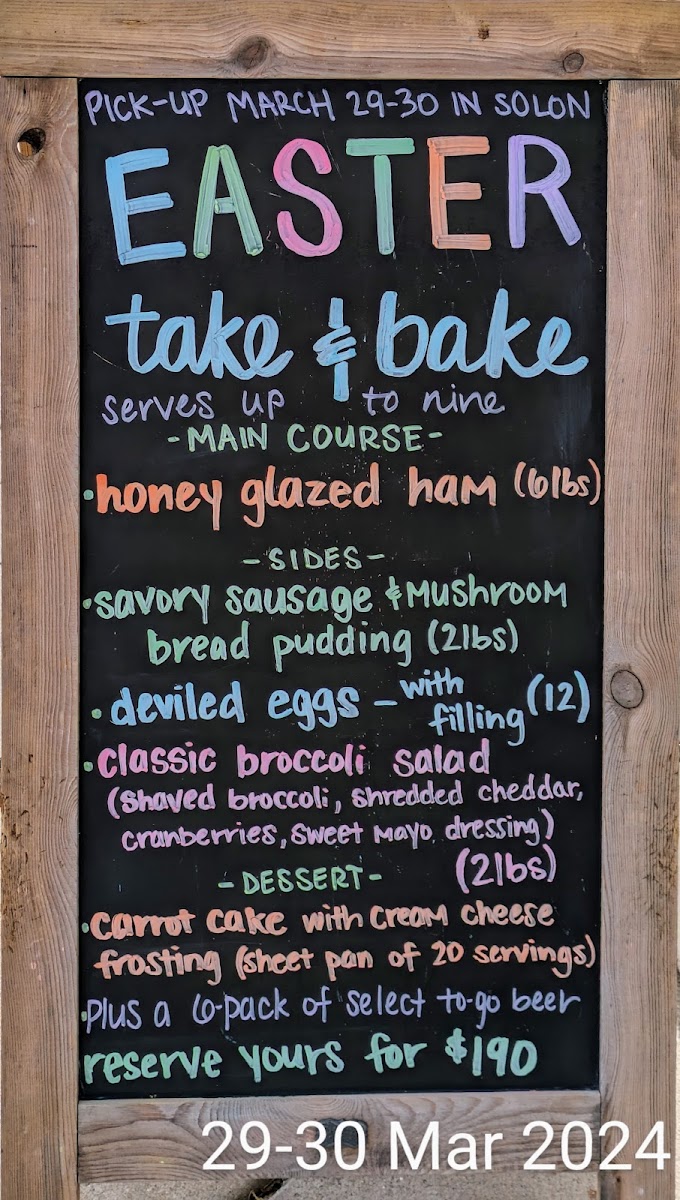 PICK-UP MARCH 29-30 IN SOLON
EASTER
take & bake
serves up to nine
-MAIN COURSE-
•honey glazed ham (6lbs)
-SIDES-
•savory sausage & mushroom
bread pudding (2lbs)
•deviled eggs - with filling (12)
•classic broccoli salad
(shaved broccoli, shredded cheddar,
cranberries, sweet mayo dressing)
(2lbs)
-DESSERT-
•carrot cake with cream cheese
frosting (sheet pan of 20 servings)
•Plus a 6-pack of select to-go beer
reserve yours for $190
29-30 Mar 2024